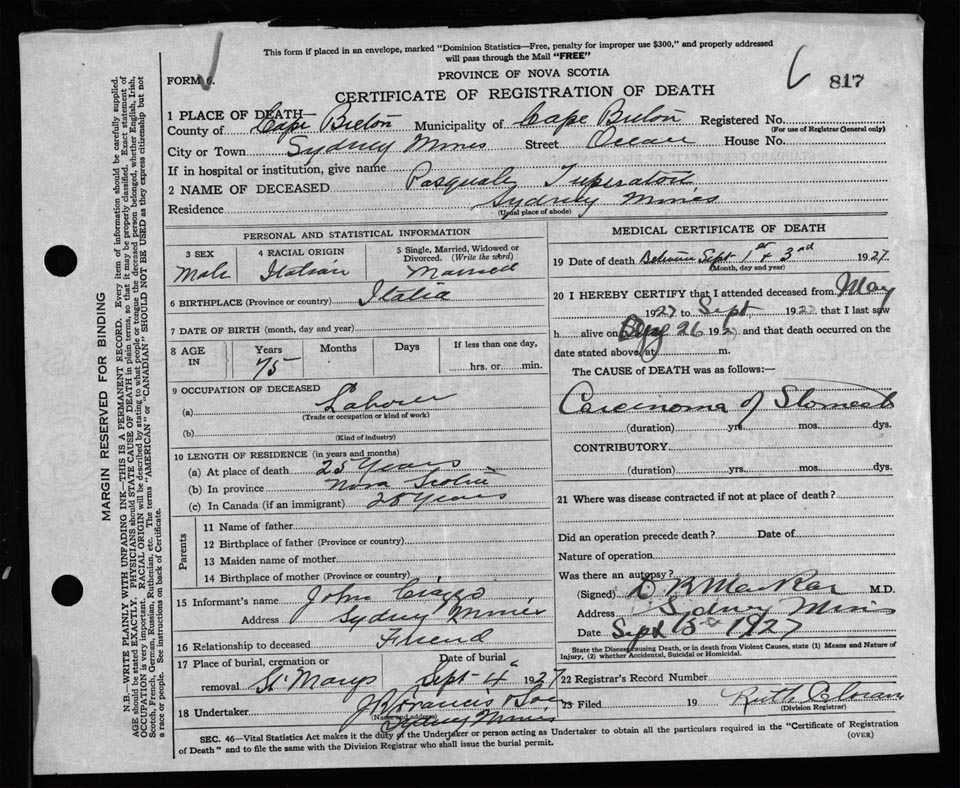 This form if placed in an envelope, marked "Dominion Statistics—Free, penalty for improper use $300," and properly addressed
will pass through the Mail "FREE"
FORM 6.
PROVINCE OF NOVA SCOTIA
817
CERTIFICATE OF REGISTRATION OF DEATH
1 PLACE OF DEATH—
County of Cape Breton Municipality of Cape Breton Registered No.
(For use of Registrar General only)
City or Town Sydney Mines Street Ocean House No.
If in hospital or institution, give name
2 NAME OF DECEASED Pasquale
Residence Sydney Mines
(Usual place of abode)
PERSONAL AND STATISTICAL INFORMATION
3 SEX Male
4 RACIAL ORIGIN Italian
5 Single, Married, Widowed or Divorced. (Write the word) Married
6 BIRTHPLACE (Province or country) Italia
7 DATE OF BIRTH (month, day and year)
8 AGE IN Years 75 Months Days If less than one day, hrs. or min.
9 OCCUPATION OF DECEASED
(a) Labourer
(Trade or occupation or kind of work)
(b)
(Kind of industry)
10 LENGTH OF RESIDENCE (in years and months)
(a) At place of death 25 Years
(b) In province Nova Scotia
(c) In Canada (if an immigrant) 28 Years
Parents
11 Name of father
12 Birthplace of father (Province or country)
13 Maiden name of mother
14 Birthplace of mother (Province or country)
15 Informant's name John
Address Sydney Mines
16 Relationship to deceased Friend
17 Place of burial, cremation or removal St Marys
Date of burial Sept 4 1927
18 Undertaker J R Francis & Son
(Name and address)
Sydney Mines
MEDICAL CERTIFICATE OF DEATH
19 Date of death Between Sept 1st & 3rd 1927
(Month, day and year)
20 I HEREBY CERTIFY that I attended deceased from May
1927 to Sept 1927 that I last saw
h alive on Aug 26 192 and that death occurred on the
date stated above, at m.
The CAUSE of DEATH was as follows:—
Carcinoma of Stomach
(duration) yrs. mos. dys.
CONTRIBUTORY
(duration) yrs. mos. dys.
21 Where was disease contracted if not at place of death?
Did an operation precede death? Date of
Nature of operation
Was there an autopsy?
(Signed) M.D.
Address Sydney Mines
Date Sept 1927
State the Disease causing Death, or in death from Violent Causes, state (1) Means and Nature of
Injury, (2) whether Accidental, Suicidal or Homicidal.
22 Registrar's Record Number
23 Filed 19 Ruth
(Division Registrar)
SEC. 46—Vital Statistics Act makes it the duty of the Undertaker or person acting as Undertaker to obtain all the particulars required in the "Certificate of Registration
of Death" and to file the same with the Division Registrar who shall issue the burial permit.
(OVER)
MARGIN RESERVED FOR BINDING
N.B.—WRITE PLAINLY WITH UNFADING INK—THIS IS A PERMANENT RECORD. Every item of information should be carefully supplied.
AGE should be stated EXACTLY. PHYSICIANS should STATE CAUSE OF DEATH in plain terms, so that it may be properly classified. Exact statement of
OCCUPATION is very important. RACIAL ORIGIN will be described by stating to what people or tongue the deceased person belonged, whether English, Irish,
Scotch, French, German, Russian, Ruthenian, etc. The terms "AMERICAN" or "CANADIAN" SHOULD NOT BE USED as they express citizenship but not
a race or people. See instructions on back of Certificate.